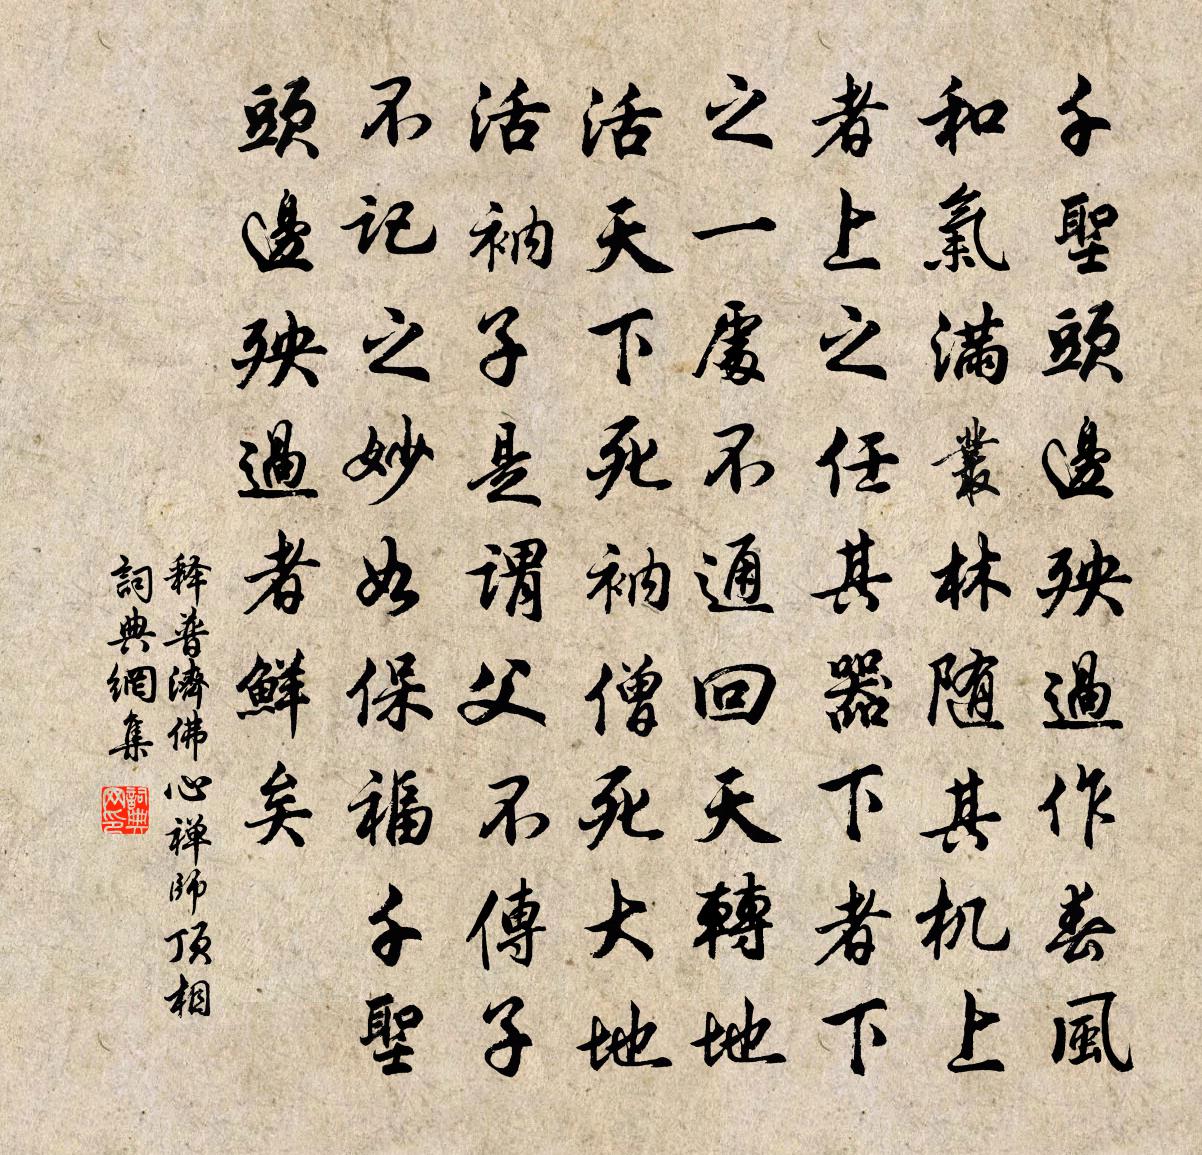 千聖頭邊殃過作春風
和氣滿叢林随其机上
者上之任其器下者下
之一處不通回天轉地
活天下死衲僧死大地
活衲子是謂父不傳子
不記之妙如保福千聖
頭邊殃過者鮮矣
释普濟佛心禅師顶相
詞典網集
詞典网印